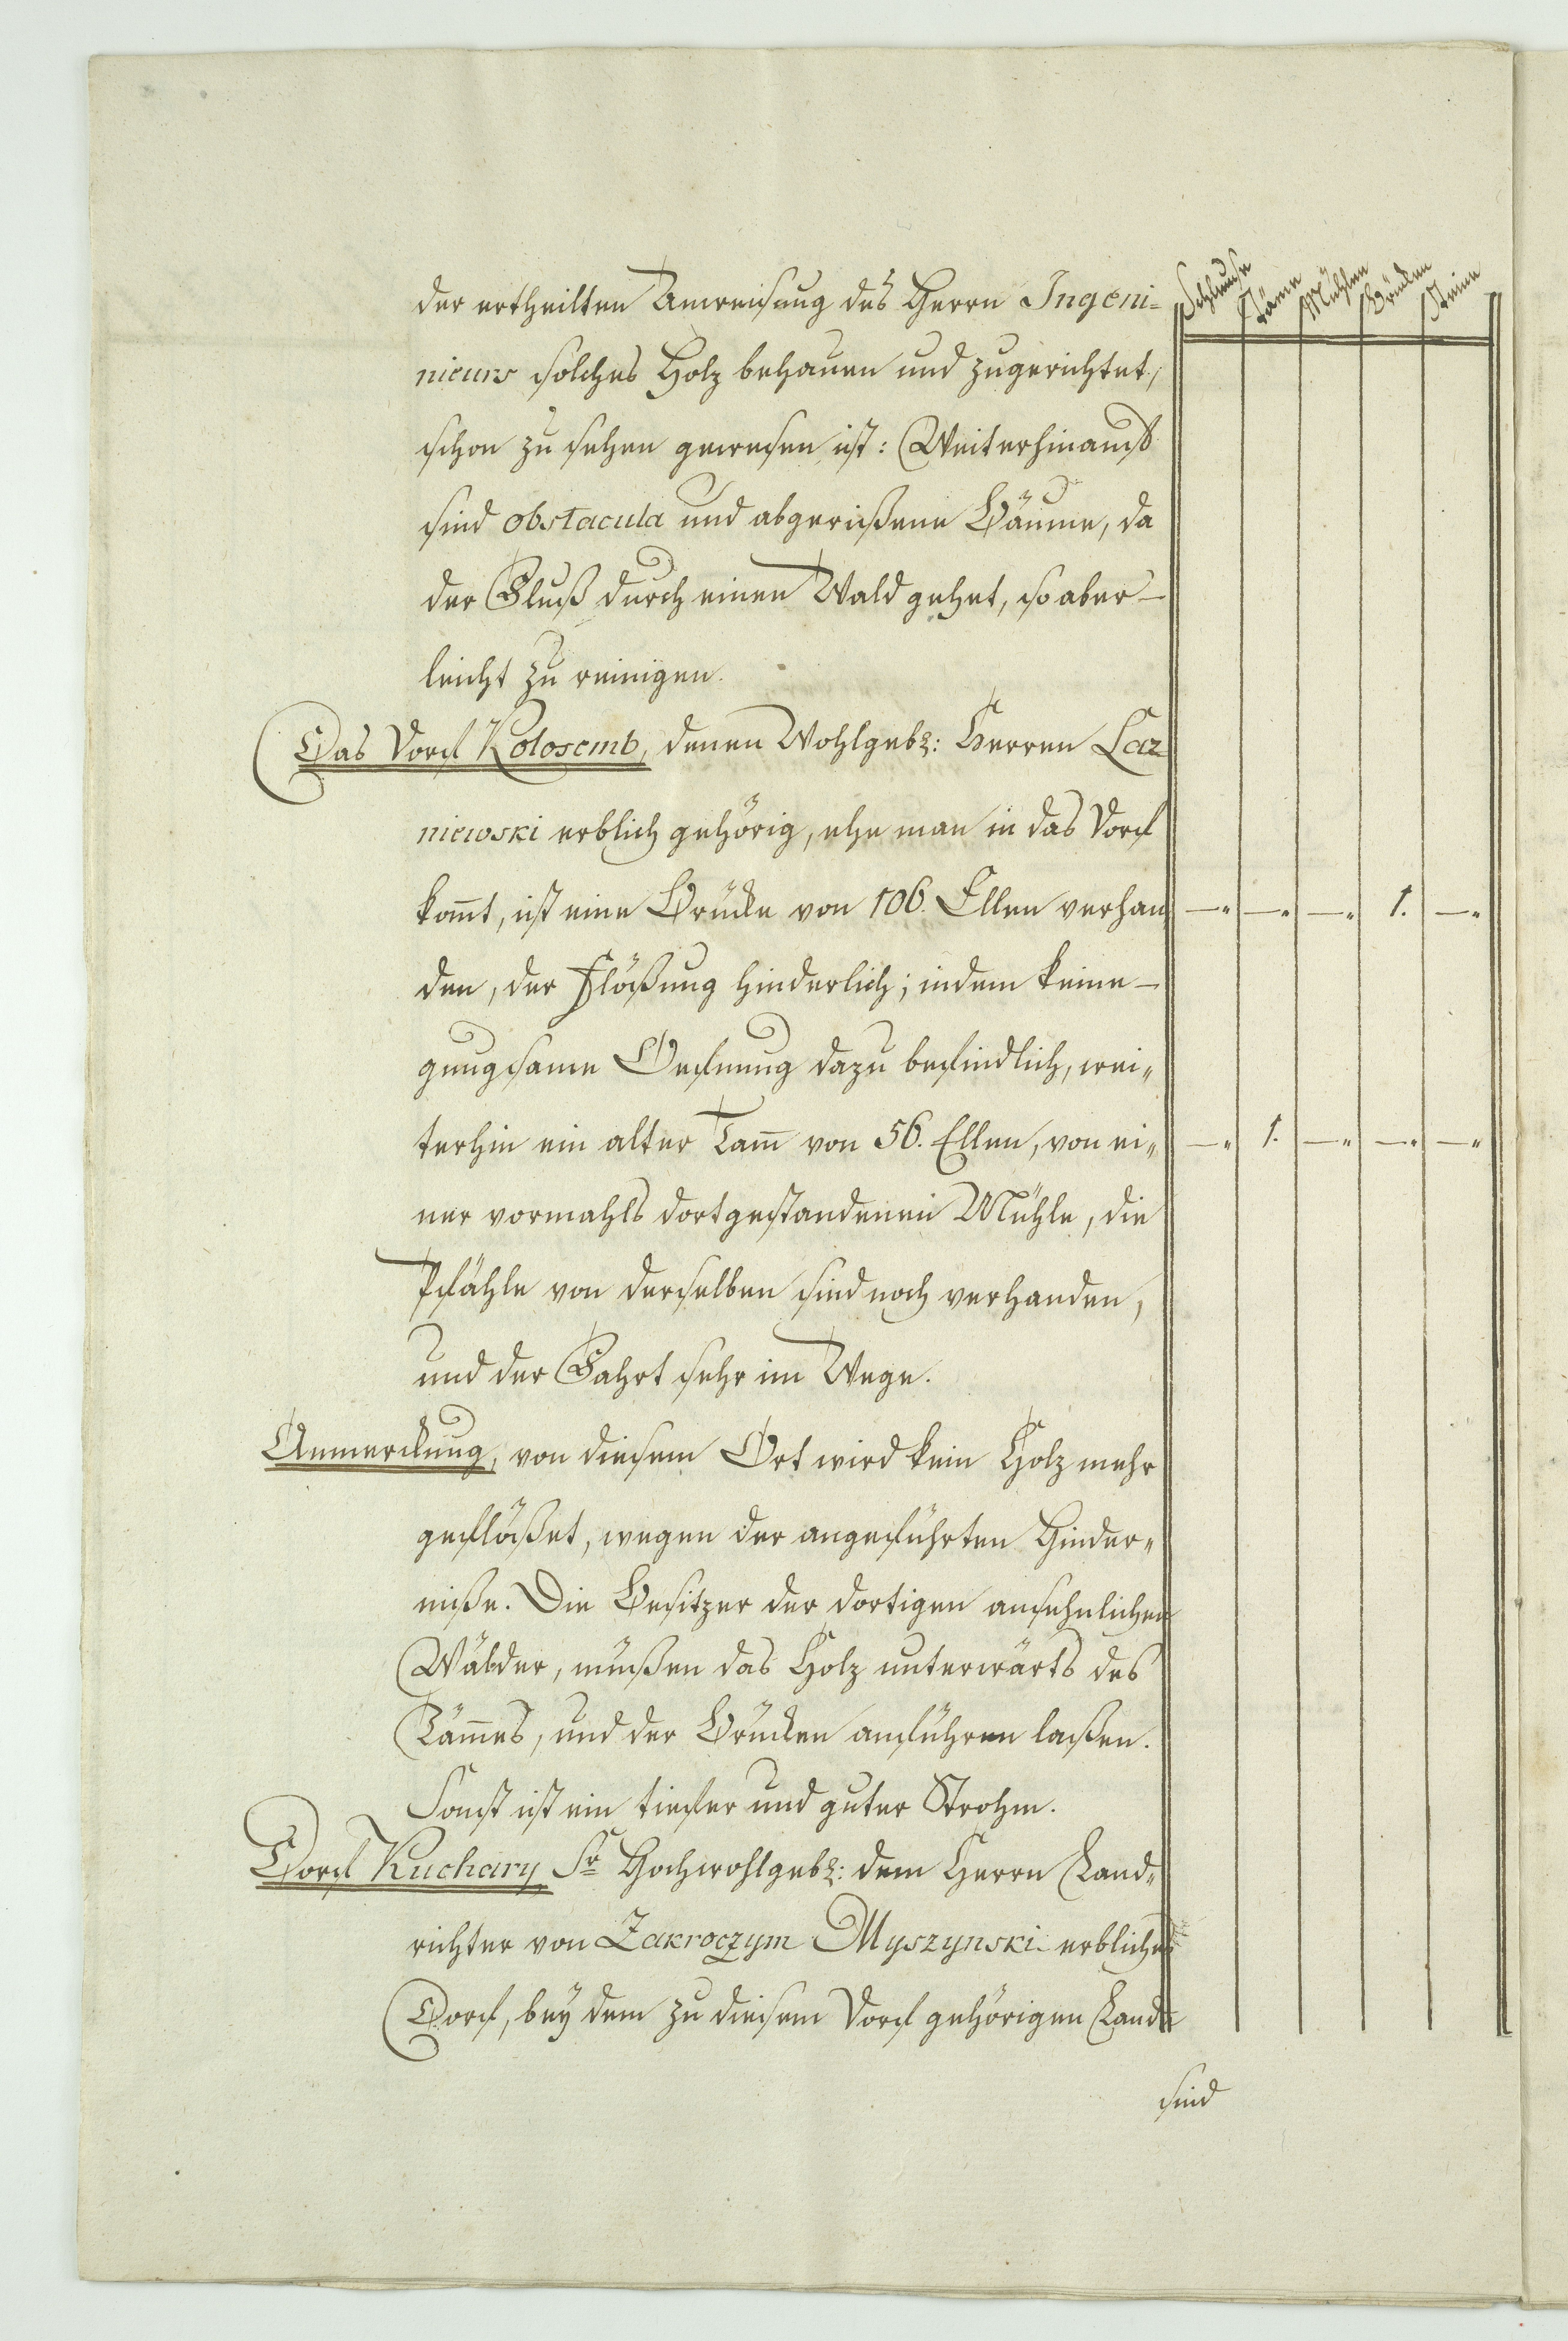 Schleuse Täme Mühlen Brücken Steine
der ertheilten Anweisung des Herrn Ingeni-
nieurs solches Holz behauen und zugerichtet,
schon zu sehen gewesen ist: Weiterhinauß
sind obstacula und abgerißene Bäume, da
der Fluß durch einen Wald gehet, so aber
leicht zu reinigen.
Das Dorf Kolosemb, denen Wohlgeb: Herren Laz
niewski erblich gehörig, ehe man in das Dorf
kom̄t, ist eine Brücke von 106. Ellen verhan -„ -„ -„ 1. -„
den, der Flößung hinderlich; indem keine
gnugsame Oefnung dazu befindlich, wei„
terhin ein alter Tam̄ von 56. Ellen, von ei„ -„ 1. -„ -„ -„
ner vormahls dortgestandenen Mühle, die
Pfähle von derselben sind noch verhanden,
und der Fahrt sehr im Wege.
Anmerckung, von diesem Ort wird kein Holz mehr
geflößet, wegen der angeführten Hinder„
niße. Die Besitzer der dortigen ansehnlichen
Wälder, müßen das Holz unterwärts des
Täm̄es, und der Brücken anführen laßen.
Sonst ist ein tiefer und guter Strohm.
Dorf Kuchary Sr Hochwohlgeb: dem Herrn Land„
richter von Zakroczym Myszynski erbliches
Dorf, bey dem zu diesem Dorf gehörigen Lande
sind